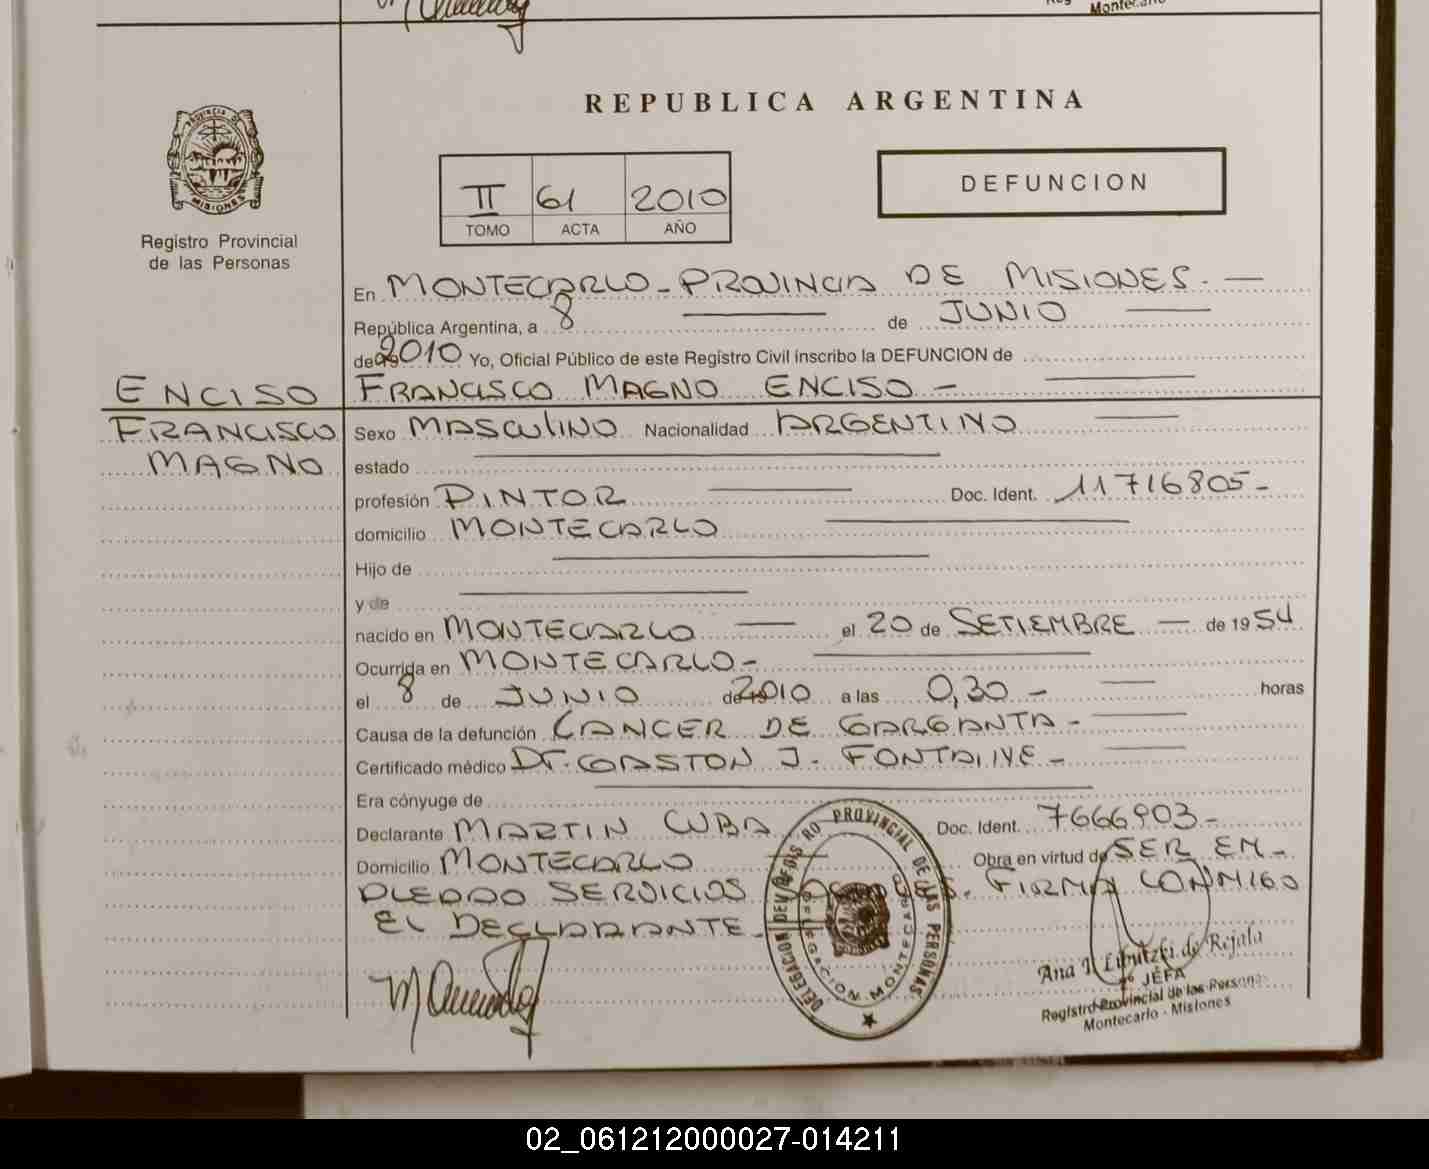 Montecarlo
REPUBLICA ARGENTINA
PROVINCIA DE
MISIONES
Registro Provincial
de las Personas
II 61 2010
TOMO ACTA AÑO
DEFUNCION
En MONTECARLO - PROVINCIA DE MISIONES. —
República Argentina, a 8 — de JUNIO —
de 2010 Yo, Oficial Público de este Registro Civil inscribo la DEFUNCION de
ENCISO FRANCISCO MAGNO ENCISO - —
FRANCISCO Sexo MASCULINO Nacionalidad ARGENTINO —
MAGNO estado —
profesión PINTOR — Doc. Ident. 11716805-
domicilio MONTECARLO —
Hijo de —
y de —
nacido en MONTECARLO — el 20 de SETIEMBRE — de 1954
Ocurrida en MONTECARLO- —
el 8 de JUNIO de 2010 a las 0,30 - — horas
Causa de la defunción CANCER DE GARGANTA - —
Certificado médico Dr. GASTON J. FONTAINE - —
Era cónyuge de —
Declarante MARTIN CUBA Doc. Ident. 7666903-
Domicilio MONTECARLO — Obra en virtud de SER EM-
PLEADO SERVICIOS SOCIALES. FIRMA CONMIGO
EL DECLARANTE.
DELEGACION DEL REGISTRO PROVINCIAL DE LAS PERSONAS
DELEGACION MONTECARLO
de Rejala
JEFA
Registro Provincial de las Personas
Montecarlo - Misiones
02_061212000027-014211